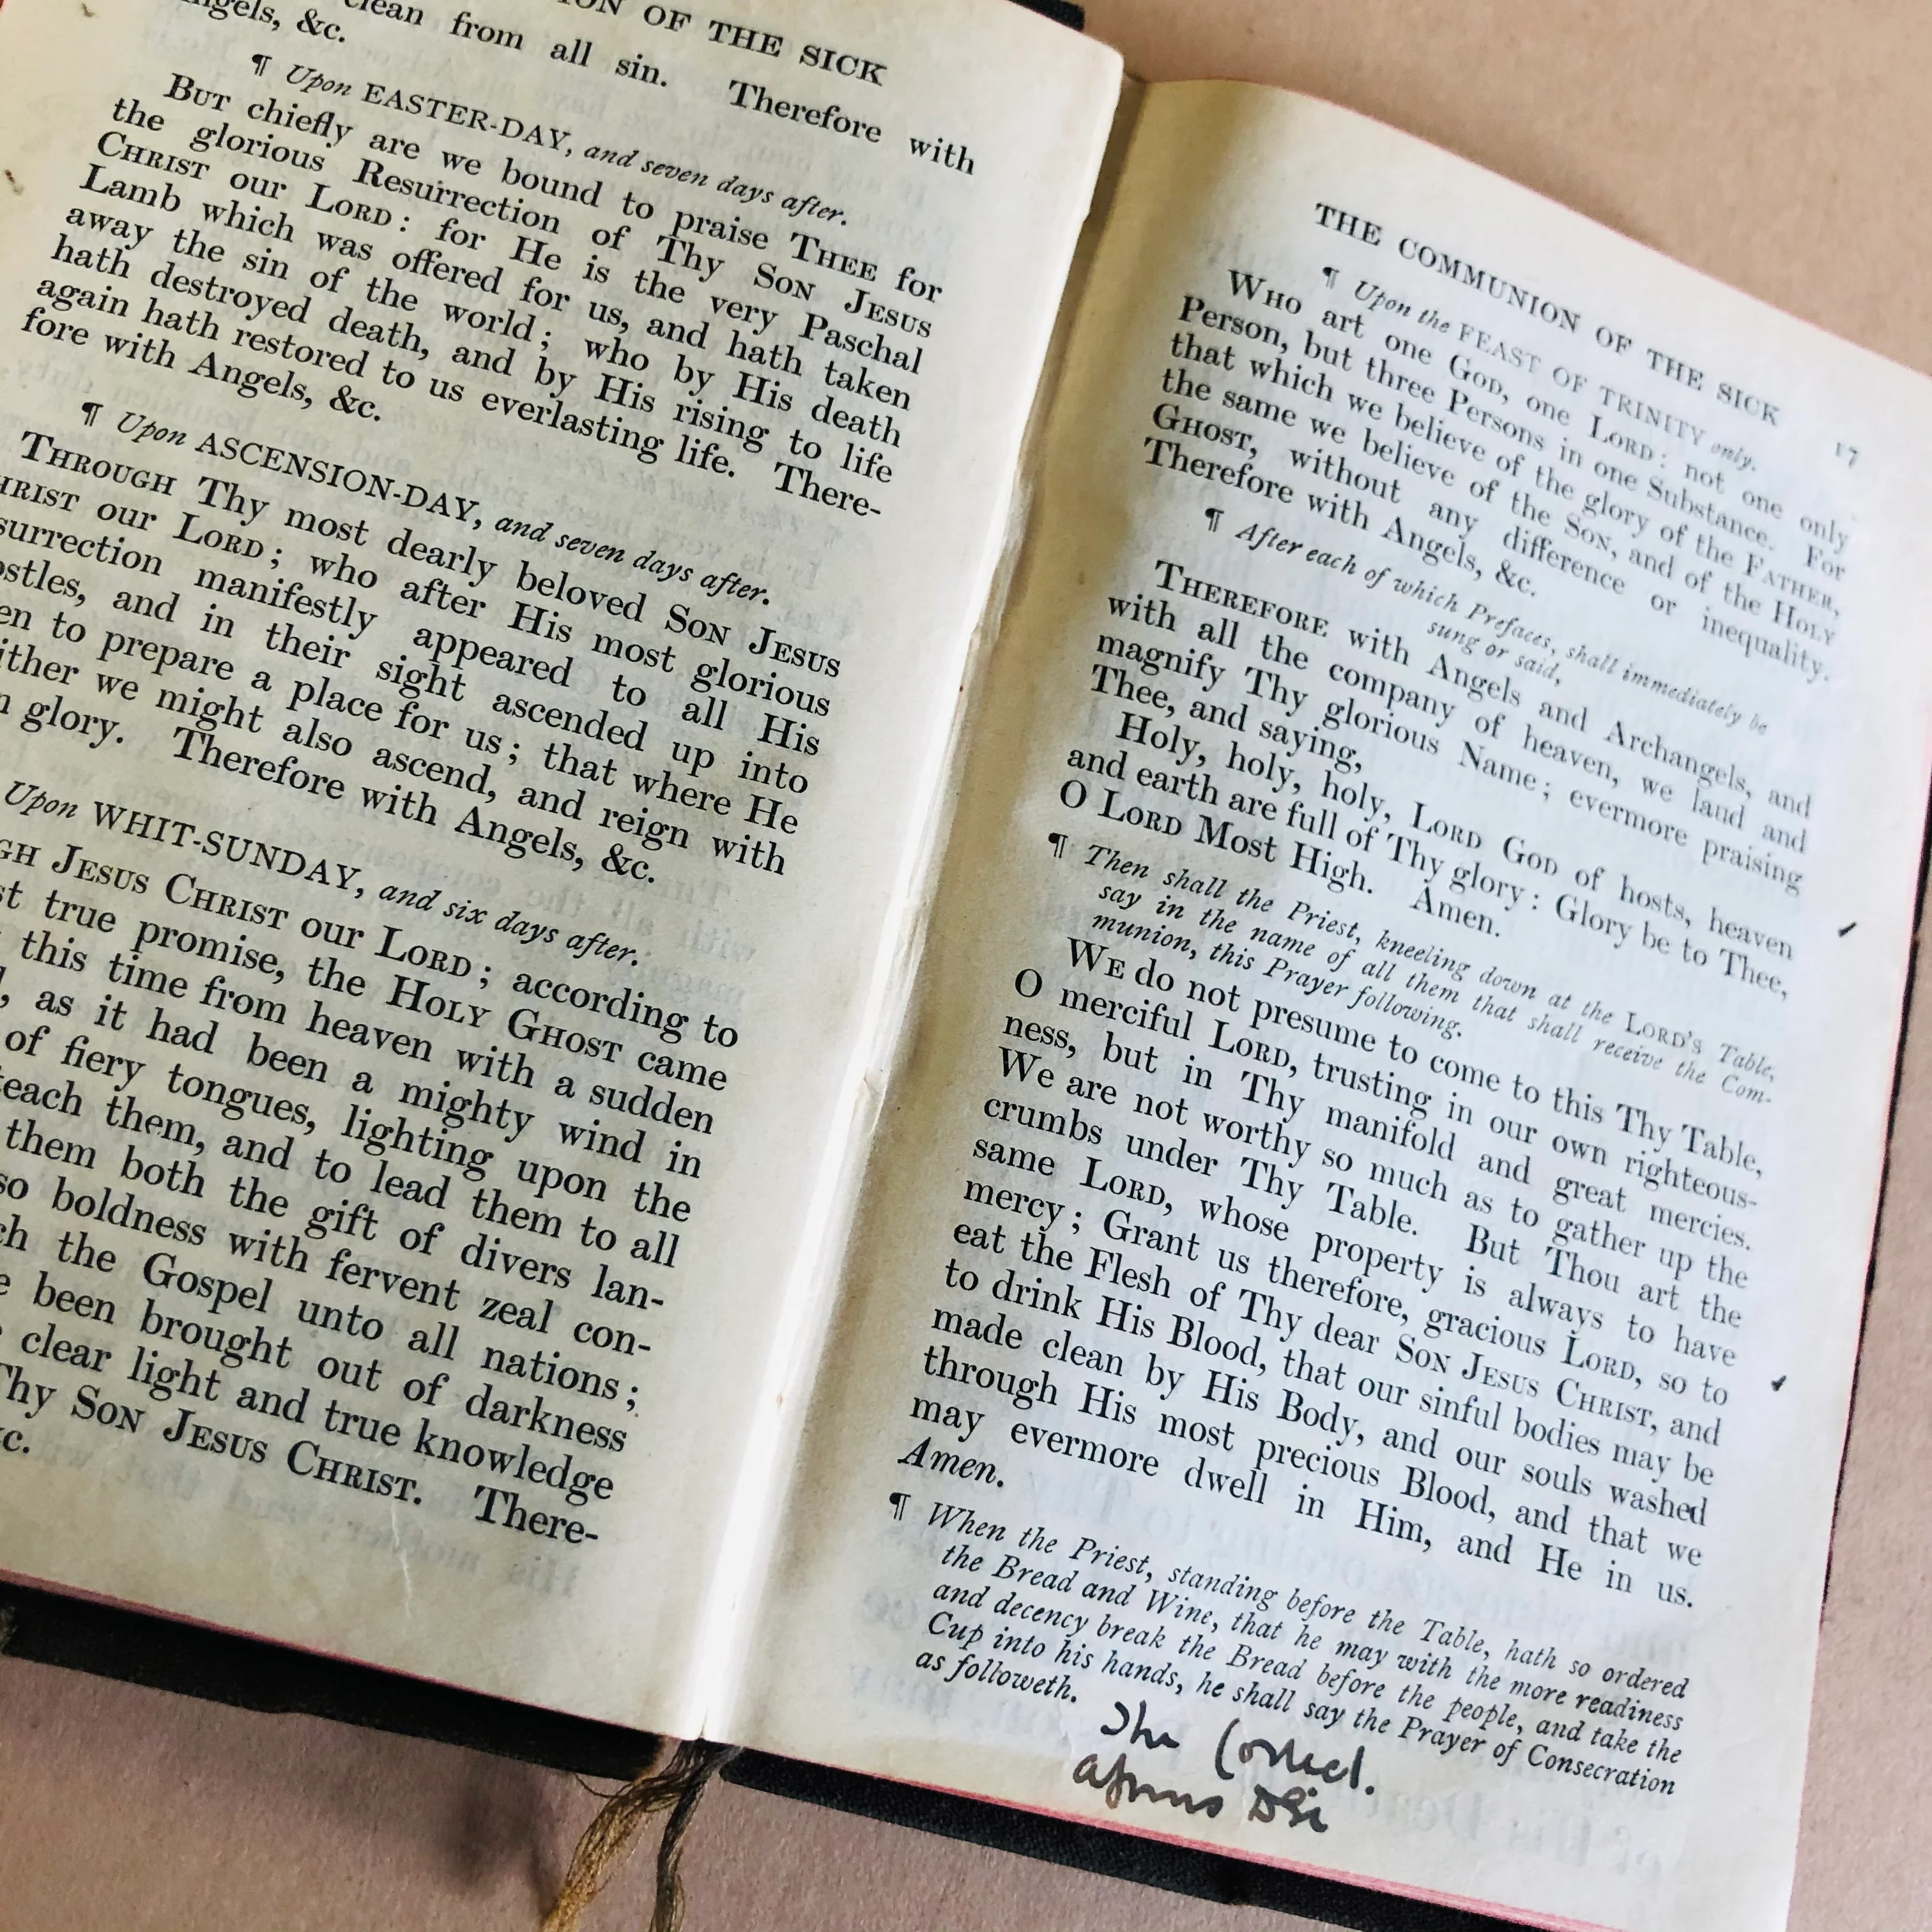 ION OF THE SICK
clean from all sin. Therefore with
ngels, &c.
¶ Upon EASTER-DAY, and seven days after.
BUT chiefly are we bound to praise THEE for
the glorious Resurrection of Thy SON JESUS
CHRIST our LORD: for He is the very Paschal
Lamb which was offered for us, and hath taken
away the sin of the world; who by His death
hath destroyed death, and by His rising to life
again hath restored to us everlasting life. There-
fore with Angels, &c.
¶ Upon ASCENSION-DAY, and seven days after.
THROUGH Thy most dearly beloved SON JESUS
HRIST our LORD; who after His most glorious
surrection manifestly appeared to all His
ostles, and in their sight ascended up into
en to prepare a place for us; that where He
ither we might also ascend, and reign with
n glory. Therefore with Angels, &c.
Upon WHIT-SUNDAY, and six days after.
GH JESUS CHRIST our LORD; according to
st true promise, the HOLY GHOST came
this time from heaven with a sudden
, as it had been a mighty wind in
of fiery tongues, lighting upon the
teach them, and to lead them to all
them both the gift of divers lan-
so boldness with fervent zeal con-
ch the Gospel unto all nations;
e been brought out of darkness
clear light and true knowledge
Thy SON JESUS CHRIST. There-
c.
THE COMMUNION OF THE SICK 17
¶ Upon the FEAST OF TRINITY only.
WHO art one GOD, one LORD: not one only
Person, but three Persons in one Substance. For
that which we believe of the glory of the FATHER,
the same we believe of the SON, and of the HOLY
GHOST, without any difference or inequality.
Therefore with Angels, &c.
¶ After each of which Prefaces, shall immediately be
sung or said,
THEREFORE with Angels and Archangels, and
with all the company of heaven, we laud and
magnify Thy glorious Name; evermore praising
Thee, and saying,
Holy, holy, holy, LORD GOD of hosts, heaven
and earth are full of Thy glory: Glory be to Thee,
O LORD Most High. Amen.
¶ Then shall the Priest, kneeling down at the LORD'S Table,
say in the name of all them that shall receive the Com-
munion, this Prayer following.
WE do not presume to come to this Thy Table,
O merciful LORD, trusting in our own righteous-
ness, but in Thy manifold and great mercies.
We are not worthy so much as to gather up the
crumbs under Thy Table. But Thou art the
same LORD, whose property is always to have
mercy; Grant us therefore, gracious LORD, so to
eat the Flesh of Thy dear SON JESUS CHRIST, and
to drink His Blood, that our sinful bodies may be
made clean by His Body, and our souls washed
through His most precious Blood, and that we
may evermore dwell in Him, and He in us.
Amen.
¶ When the Priest, standing before the Table, hath so ordered
the Bread and Wine, that he may with the more readiness
and decency break the Bread before the people, and take the
Cup into his hands, he shall say the Prayer of Consecration
as followeth.
The
Agnus Dei